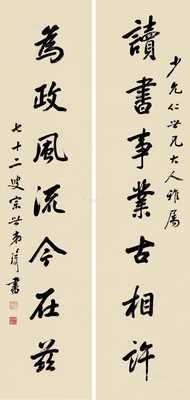 讀書事業古相許
少允仁世兄大人雅屬
為政風流今在茲
七十二叟宗世弟 書